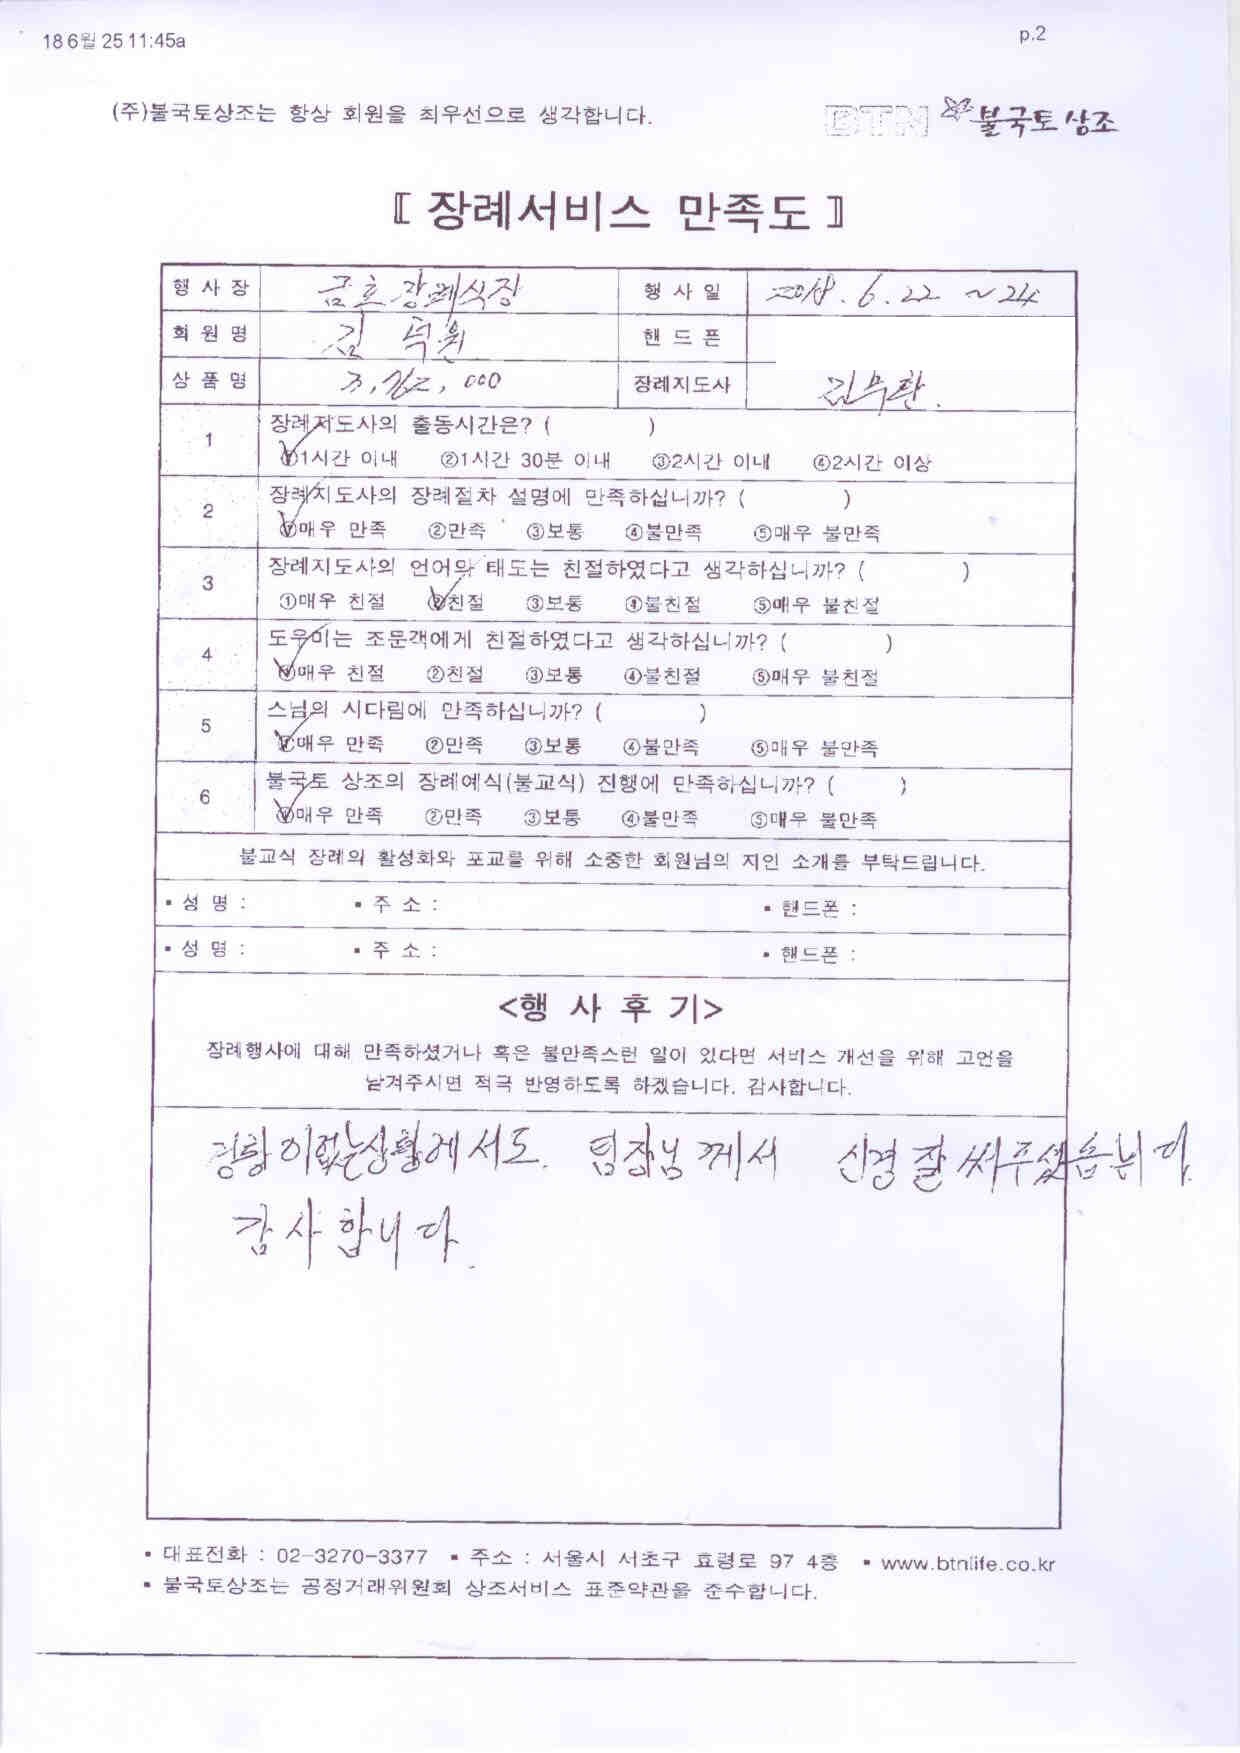 18 6월 25 11:45a
p.2
(주)불국토상조는 항상 회원을 최우선으로 생각합니다.
BTN 불국토상조
〖 장례서비스 만족도 〗
행 사 장 금호장례식장 행 사 일 2018. 6. 22 ~ 24
회 원 명 김 덕원 핸 드 폰
상 품 명 장례지도사 김무환.
1 장례지도사의 출동시간은? ( )
①1시간 이내 ②1시간 30분 이내 ③2시간 이내 ④2시간 이상
2 장례지도사의 장례절차 설명에 만족하십니까? ( )
①매우 만족 ②만족 ③보통 ④불만족 ⑤매우 불만족
3 장례지도사의 언어와 태도는 친절하였다고 생각하십니까? ( )
①매우 친절 ②친절 ③보통 ④불친절 ⑤매우 불친절
4 도우미는 조문객에게 친절하였다고 생각하십니까? ( )
①매우 친절 ②친절 ③보통 ④불친절 ⑤매우 불친절
5 스님의 시다림에 만족하십니까? ( )
①매우 만족 ②만족 ③보통 ④불만족 ⑤매우 불만족
6 불국토 상조의 장례예식(불교식) 진행에 만족하십니까? ( )
①매우 만족 ②만족 ③보통 ④불만족 ⑤매우 불만족
불교식 장례의 활성화와 포교를 위해 소중한 회원님의 지인 소개를 부탁드립니다.
▪ 성 명 : ▪ 주 소 : ▪ 핸드폰 :
▪ 성 명 : ▪ 주 소 : ▪ 핸드폰 :
<행 사 후 기>
장례행사에 대해 만족하셨거나 혹은 불만족스런 일이 있다면 서비스 개선을 위해 고언을
남겨주시면 적극 반영하도록 하겠습니다. 감사합니다.
경황이없는상황에서도. 팀장님께서 신경 잘 써주셨습니다.
감사합니다.
▪ 대표전화 : 02-3270-3377 ▪ 주소 : 서울시 서초구 효령로 97 4층 ▪ www.btnlife.co.kr
▪ 불국토상조는 공정거래위원회 상조서비스 표준약관을 준수합니다.